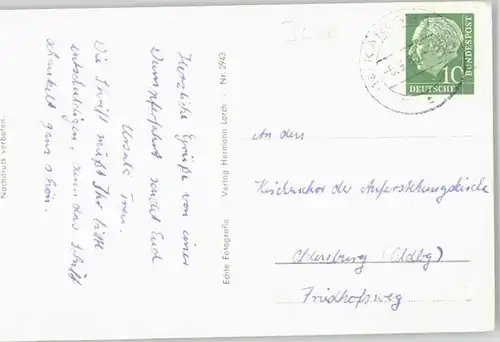 Herzliche Grüße von einer
Dampferfahrt sendet Euch
Ursula
Die Schrift müßt Ihr bitte
entschuldigen, denn das Schiff
schaukelt ganz schön.
Nachdruck verboten.
Echte Fotografie Verlag Hermann Lorch - Nr. 6943
DEUTSCHE
BUNDESPOST
10
An den
Kirchenchor der Auferstehungskirche
Oldenburg (Oldbg)
Friedhofsweg